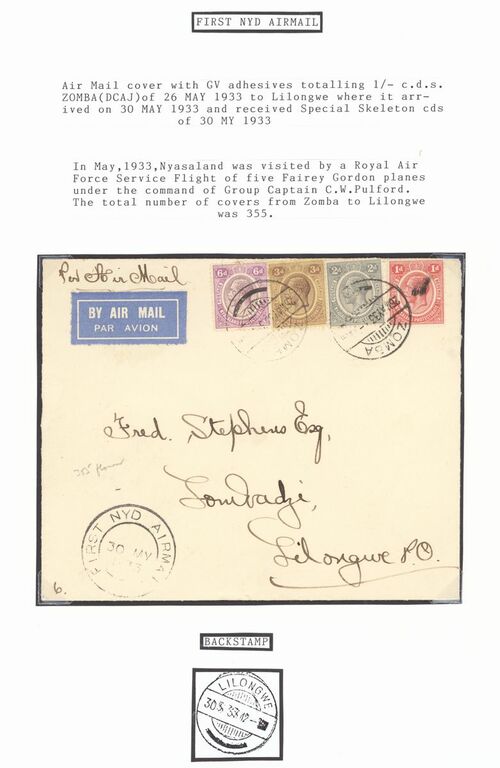 FIRST NYD AIRMAIL
Air Mail cover with GV adhesives totalling 1/- c.d.s.
ZOMBA(DCAJ)of 26 MAY 1933 to Lilongwe where it arr-
ived on 30 MAY 1933 and received Special Skeleton cds
of 30 MY 1933
In May,1933,Nyasaland was visited by a Royal Air
Force Service Flight of five Fairey Gordon planes
under the command of Group Captain C.W.Pulford.
The total number of covers from Zomba to Lilongwe
was 355.
Per Air Mail
6d 6d
3d 3d
2d 2d
1d 1d
BY AIR MAIL
PAR AVION
ZOMBA
Fred. Stephens Esq,
Lombadzi,
Lilongwe P.O.
FIRST NYD AIRMAIL
30 MY
1933
6.
BACKSTAMP
LILONGWE